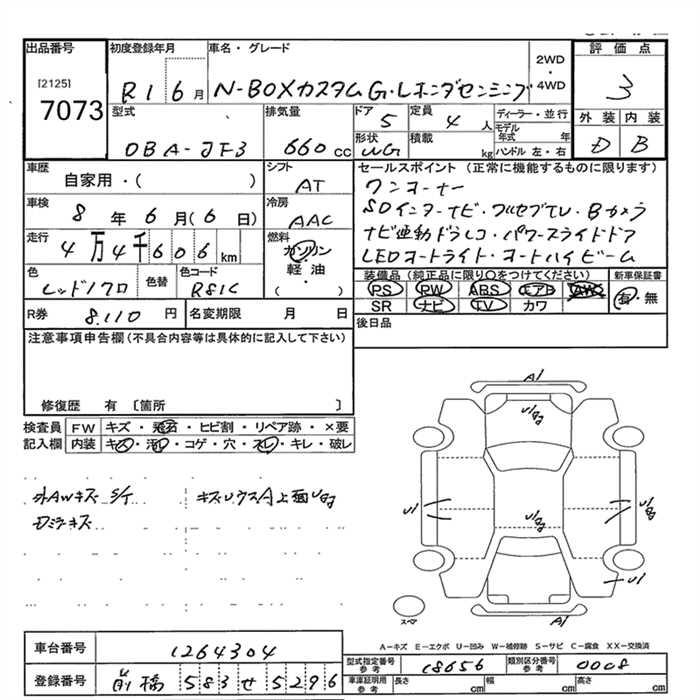 出品番号
[2125]
7073
初度登録年月
R1 6月
車名・グレード
N-BOXカスタム G・Lホンダセンシング
2WD・4WD
評価点
3
外装 内装
D B
型式
DBA-JF3
排気量
660 cc
ドア
5
形状
WG
定員
4 人
積載
kg
ディーラー・並行
モデル年式 年
ハンドル 左・右
車歴
自家用・( )
車検
8年6月(6日)
走行
4万4千606km
色
レッド/クロ
色替
色コード
R81C
シフト
AT
冷房
AAC
燃料
ガソリン
軽・油
・( )
セールスポイント (正常に機能するものに限ります)
ワンオーナー
SDインターナビ・フルセグTV・Bカメラ
ナビ連動ドラレコ・パワースライドドア
LEDオートライト・オートハイビーム
装備品 (純正品に限り○をつけてください)
PS PW ABS エアB AW
SR ナビ TV カワ
新車保証書
有・無
R券
8,110 円
名変期限 月 日
後日品
注意事項申告欄(不具合内容等は具体的に記入して下さい)
修復歴 有 〔箇所 〕
検査員記入欄
FW キズ・飛石・ヒビ割・リペア跡・×要
内装 キズ・汚れ・コゲ・穴・スレ・キレ・破レ
外AWキズ S/T
Dミラーキズ
A1
U1
U1
A1
スペア
A—キズ E—エクボ U—凹み W—補修跡 S—サビ C—腐食 XX—交換済
車台番号
1264304
登録番号
前橋 583 せ 5296
型式指定番号 参考
18656
類別区分番号 参考
0008
車庫証明用 参考
長さ cm
幅 cm
高さ cm